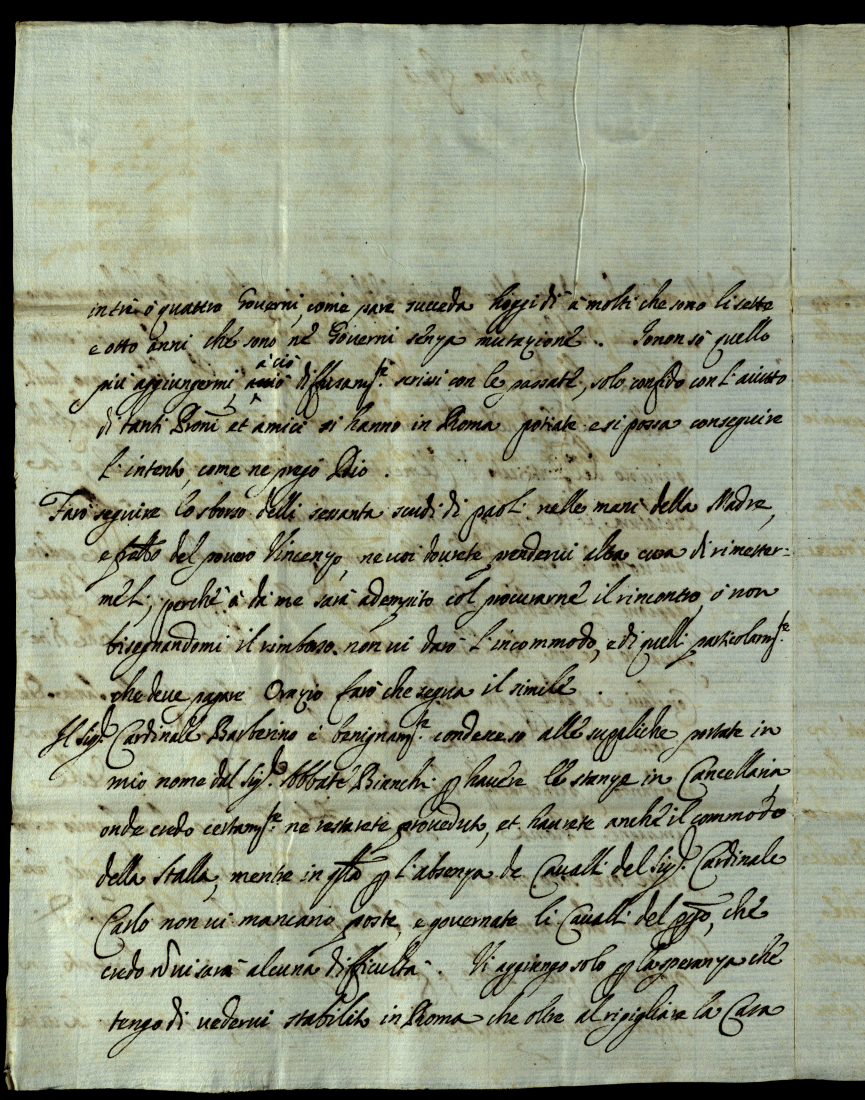 in tre ò quattro Governi, come pare succeda hoggi dì à molti che sono li sette
e otto anni che sono ne Governi senza mutazione. Io non sò quello
à ciò
più aggiungermi, diffusam.te scrissi con le passate, solo confido con l'aiuto
di tanti Proni et amici si hanno in Roma potiate e si possa conseguire
l'intento, come ne prego Dio.
Farò seguire lo sborso delli sessanta scudi di paoli nelle mani della Madre,
e del povero Vincenzo, ne voi dovrete prendervi altra cura di rimetter=
meli, perche à da me sarà adempito col procurarne il rincontro, ò non
bisognandomi il rimborso non vi darò l'incommodo, e di quelli particolarm.te
che deve pagare Orazio farò che segua il simile.
Il Sig.r Cardinale Barberino è benignam.te condesceso alle suppliche portate in
mio nome dal Sig.r Abbate Bianchi p havere le stanze in Cancellaria,
onde credo certam.te ne restarete proveduto, et haurete anche il commodo
della Stalla, mentre in qsto p l'absenza de Cavalli del Sig.r Cardinale
Carlo non vi mancano poste, e governate li Cavalli del pp̃o, che
credo nõ vi sarà alcuna difficultà. Vi aggiungo solo p la speranza che
tengo di vedervi stabilito in Roma che oltre al ripigliare la Casa